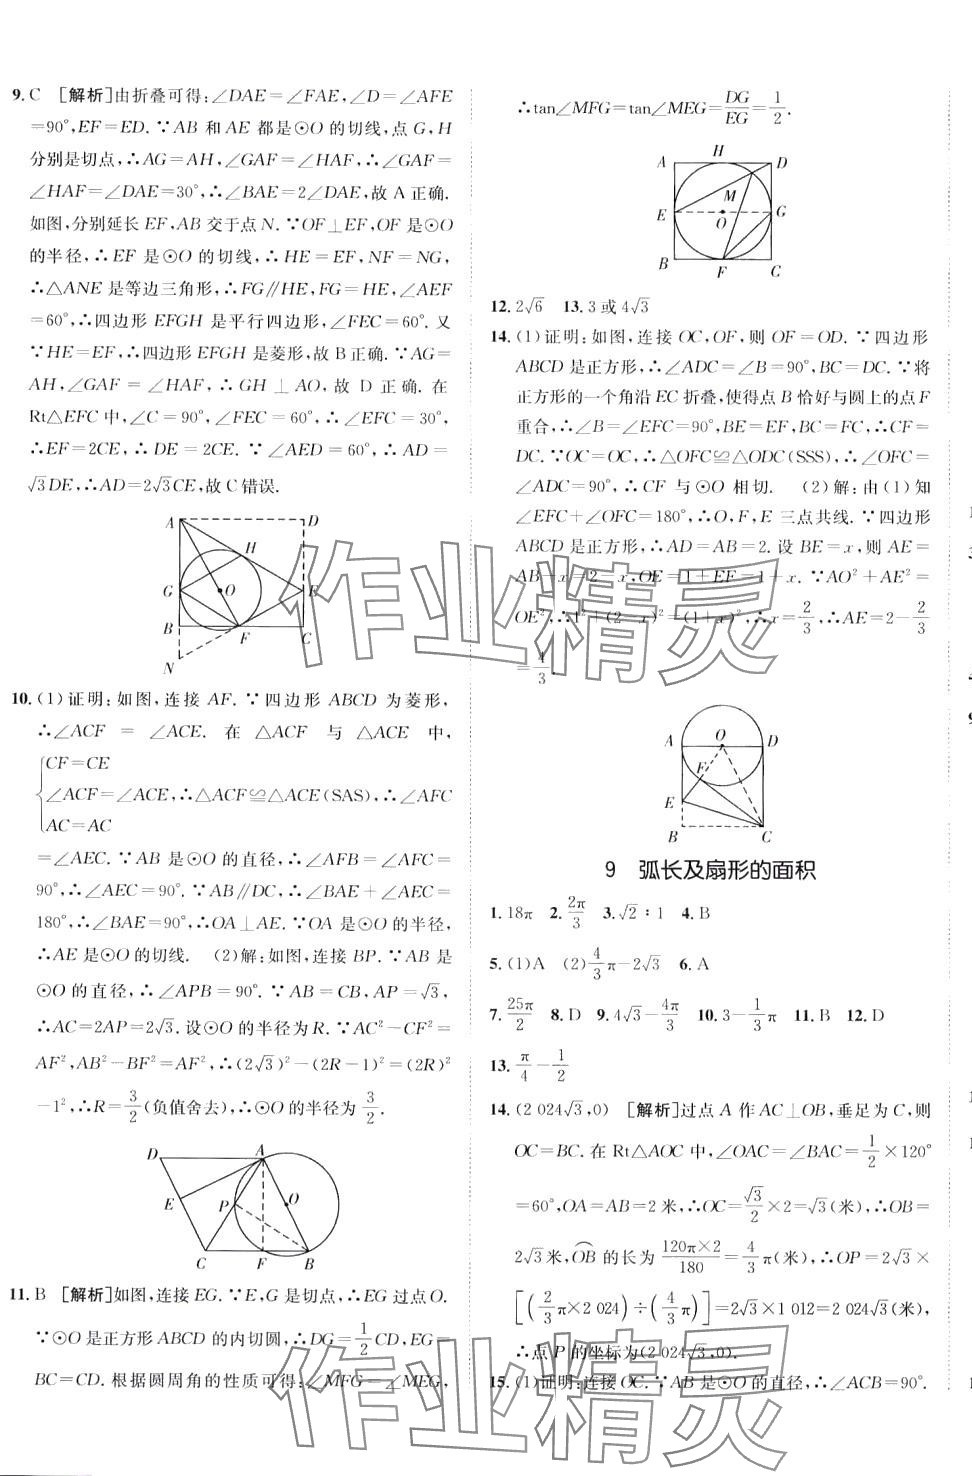 9. C　[解析]由折叠可得:∠DAE=∠FAE,∠D=∠AFE
=90°,EF=ED. ∵AB 和 AE 都是⊙O 的切线,点 G,H
分别是切点,∴AG=AH,∠GAF=∠HAF,∴∠GAF=
∠HAF=∠DAE=30°,∴∠BAE=2∠DAE,故 A 正确.
如图,分别延长 EF,AB 交于点 N. ∵OF⊥EF,OF 是⊙O
的半径,∴EF 是⊙O 的切线,∴HE=EF,NF=NG,
∴△ANE 是等边三角形,∴FG∥HE,FG=HE,∠AEF
=60°,∴四边形 EFGH 是平行四边形,∠FEC=60°. 又
∵HE=EF,∴四边形 EFGH 是菱形,故 B 正确. ∵AG=
AH,∠GAF=∠HAF,∴GH⊥AO,故 D 正确. 在
Rt△EFC 中,∠C=90°,∠FEC=60°,∴∠EFC=30°,
∴EF=2CE,∴DE=2CE. ∵∠AED=60°,∴AD=
√3DE,∴AD=2√3CE,故 C 错误.
A D
H
G O E
B F C
N
10. (1)证明:如图,连接 AF. ∵四边形 ABCD 为菱形,
∴∠ACF=∠ACE. 在△ACF 与△ACE 中,
CF=CE
∠ACF=∠ACE,∴△ACF≌△ACE(SAS),∴∠AFC
AC=AC
=∠AEC. ∵AB 是⊙O 的直径,∴∠AFB=∠AFC=
90°,∴∠AEC=90°. ∵AB∥DC,∴∠BAE+∠AEC=
180°,∴∠BAE=90°,∴OA⊥AE. ∵OA 是⊙O 的半径,
∴AE 是⊙O 的切线.　(2)解:如图,连接 BP. ∵AB 是
⊙O 的直径,∴∠APB=90°. ∵AB=CB,AP=√3,
∴AC=2AP=2√3. 设⊙O 的半径为 R. ∵AC²-CF²=
AF²,AB²-BF²=AF²,∴(2√3)²-(2R-1)²=(2R)²
-1²,∴R=3/2(负值舍去),∴⊙O 的半径为 3/2.
D A
E P O
C F B
11. B　[解析]如图,连接 EG. ∵E,G 是切点,∴EG 过点 O.
∵⊙O 是正方形 ABCD 的内切圆,∴DG=1/2CD,EG=
BC=CD. 根据圆周角的性质可得:∠MFG=∠MEG,
∴tan∠MFG=tan∠MEG=DG/EG=1/2.
A H D
M
E O G
B F C
12. 2√6　13. 3 或 4√3
14. (1)证明:如图,连接 OC,OF,则 OF=OD. ∵四边形
ABCD 是正方形,∴∠ADC=∠B=90°,BC=DC. ∵将
正方形的一个角沿 EC 折叠,使得点 B 恰好与圆上的点 F
重合,∴∠B=∠EFC=90°,BE=EF,BC=FC,∴CF=
DC. ∵OC=OC,∴△OFC≌△ODC(SSS),∴∠OFC=
∠ODC=90°,∴CF 与⊙O 相切.　(2)解:由(1)知
∠EFC+∠OFC=180°,∴O,F,E 三点共线. ∵四边形
ABCD 是正方形,∴AD=AB=2. 设 BE=x,则 AE=
AB-x=2-x,OE=1+EF=1+x. ∵AO²+AE²=
OE²,∴1²+(2-x)²=(1+x)²,∴x=2/3,∴AE=2-2/3
=4/3.
A O D
F
E
B C
9　弧长及扇形的面积
1. 18π　2. 2π/3　3. √2∶1　4. B
5. (1)A　(2)4/3π-2√3　6. A
7. 25π/2　8. D　9. 4√3-4π/3　10. 3-1/3π　11. B　12. D
13. π/4-1/2
14. (2 024√3,0)　[解析]过点 A 作 AC⊥OB,垂足为 C,则
OC=BC. 在 Rt△AOC 中,∠OAC=∠BAC=1/2×120°
=60°,OA=AB=2 米,∴OC=√3/2×2=√3(米),∴OB=
2√3米,OB 的长为 120π×2/180=4/3π(米),∴OP=2√3×
[(2/3π×2 024)÷(4/3π)]=2√3×1 012=2 024√3(米),
∴点 P 的坐标为(2 024√3,0).
15. (1)证明:连接 OC. ∵AB 是⊙O 的直径,∴∠ACB=90°.
作业精灵
作业精灵